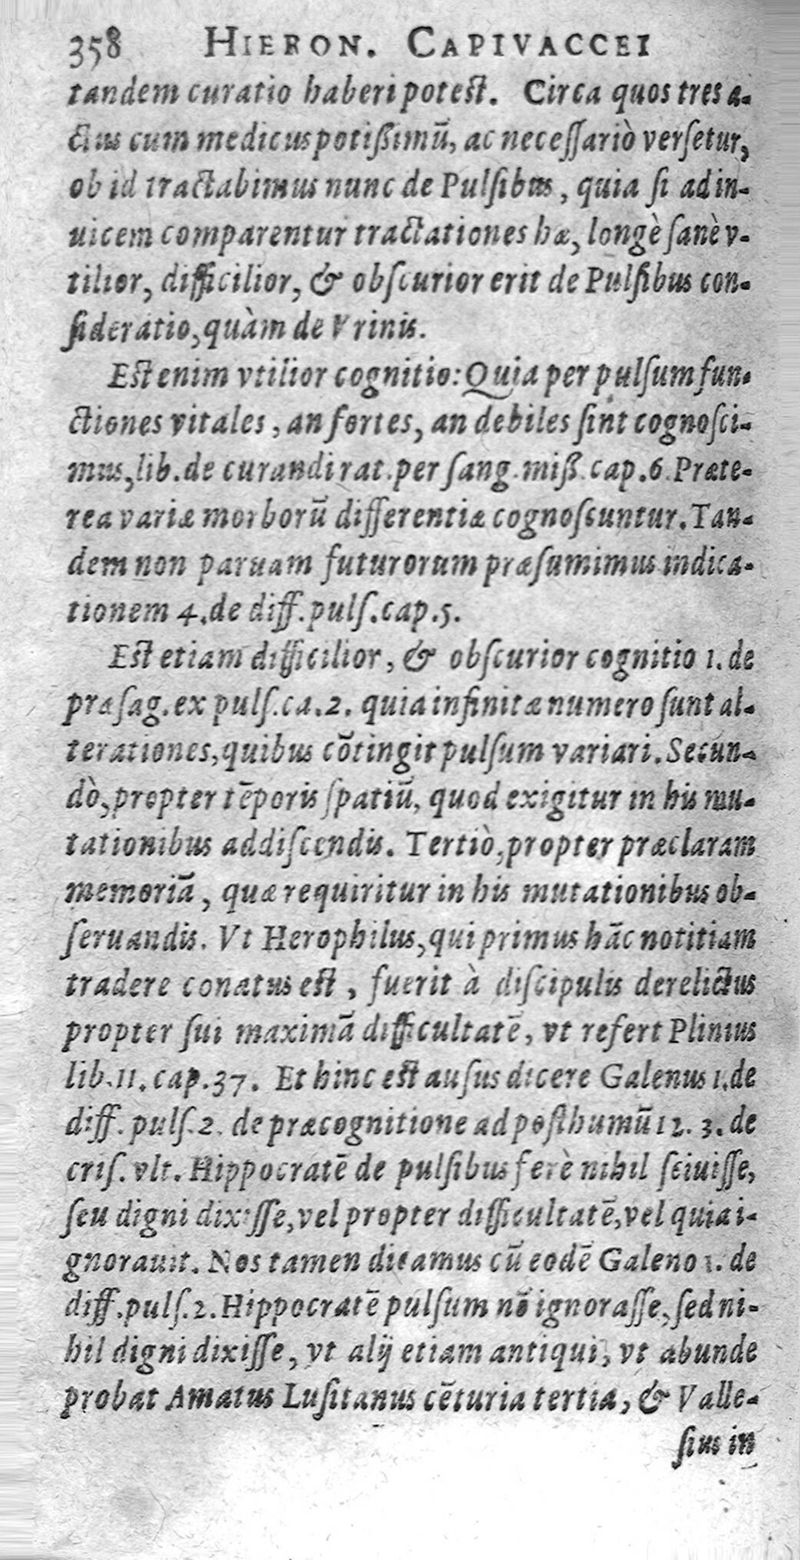 358 HIERON. CAPIVACCEI
tandem curatio haberi potest. Circa quos tres a-
ctus cum medicus potißimũ, ac neceſſariò verſetur,
ob id tractabimus nunc de Pulſibus, quia ſi adin-
uicem comparentur tractationes hæ, longè ſanè v-
tilior, difficilior, & obſcurior erit de Pulſibus con-
ſideratio, quàm de Vrinis.
Est enim vtilior cognitio: Quia per pulſum fun-
ctiones vitales, an fortes, an debiles ſint cognoſci-
mus, lib. de curandi rat. per ſang. miß. cap. 6. Præte-
rea variæ morborũ differentiæ cognoſcuntur. Tan-
dem non paruam futurorum præſumimus indica-
tionem 4. de diff. pulſ. cap. 5.
Est etiam difficilior, & obſcurior cognitio 1. de
præſag. ex pulſ. ca. 2. quia infinitæ numero ſunt al-
terationes, quibus cõtingit pulſum variari. Secun-
dò, propter tẽporis ſpatiũ, quod exigitur in his mu-
tationibus addiſcendis. Tertiò, propter præclaram
memoriã, quæ requiritur in his mutationibus ob-
ſeruandis. Vt Herophilus, qui primus hãc notitiam
tradere conatus est, fuerit à diſcipulis derelictus
propter ſui maximã difficultatẽ, vt refert Plinius
lib. 11. cap. 37. Et hinc est auſus dicere Galenus 1. de
diff. pulſ. 2. de præcognitione ad posthumũ 12. 3. de
criſ. vlt. Hippocratẽ de pulſibus ferè nihil ſciuiſſe,
ſeu digni dixiſſe, vel propter difficultatẽ, vel quia i-
gnorauit. Nos tamen dicamus cũ eodẽ Galeno 1. de
diff. pulſ. 2. Hippocratẽ pulſum nõ ignoraſſe, ſed ni-
hil digni dixiſſe, vt alij etiam antiqui, vt abunde
probat Amatus Luſitanus cẽturia tertia, & Valle-
ſius in